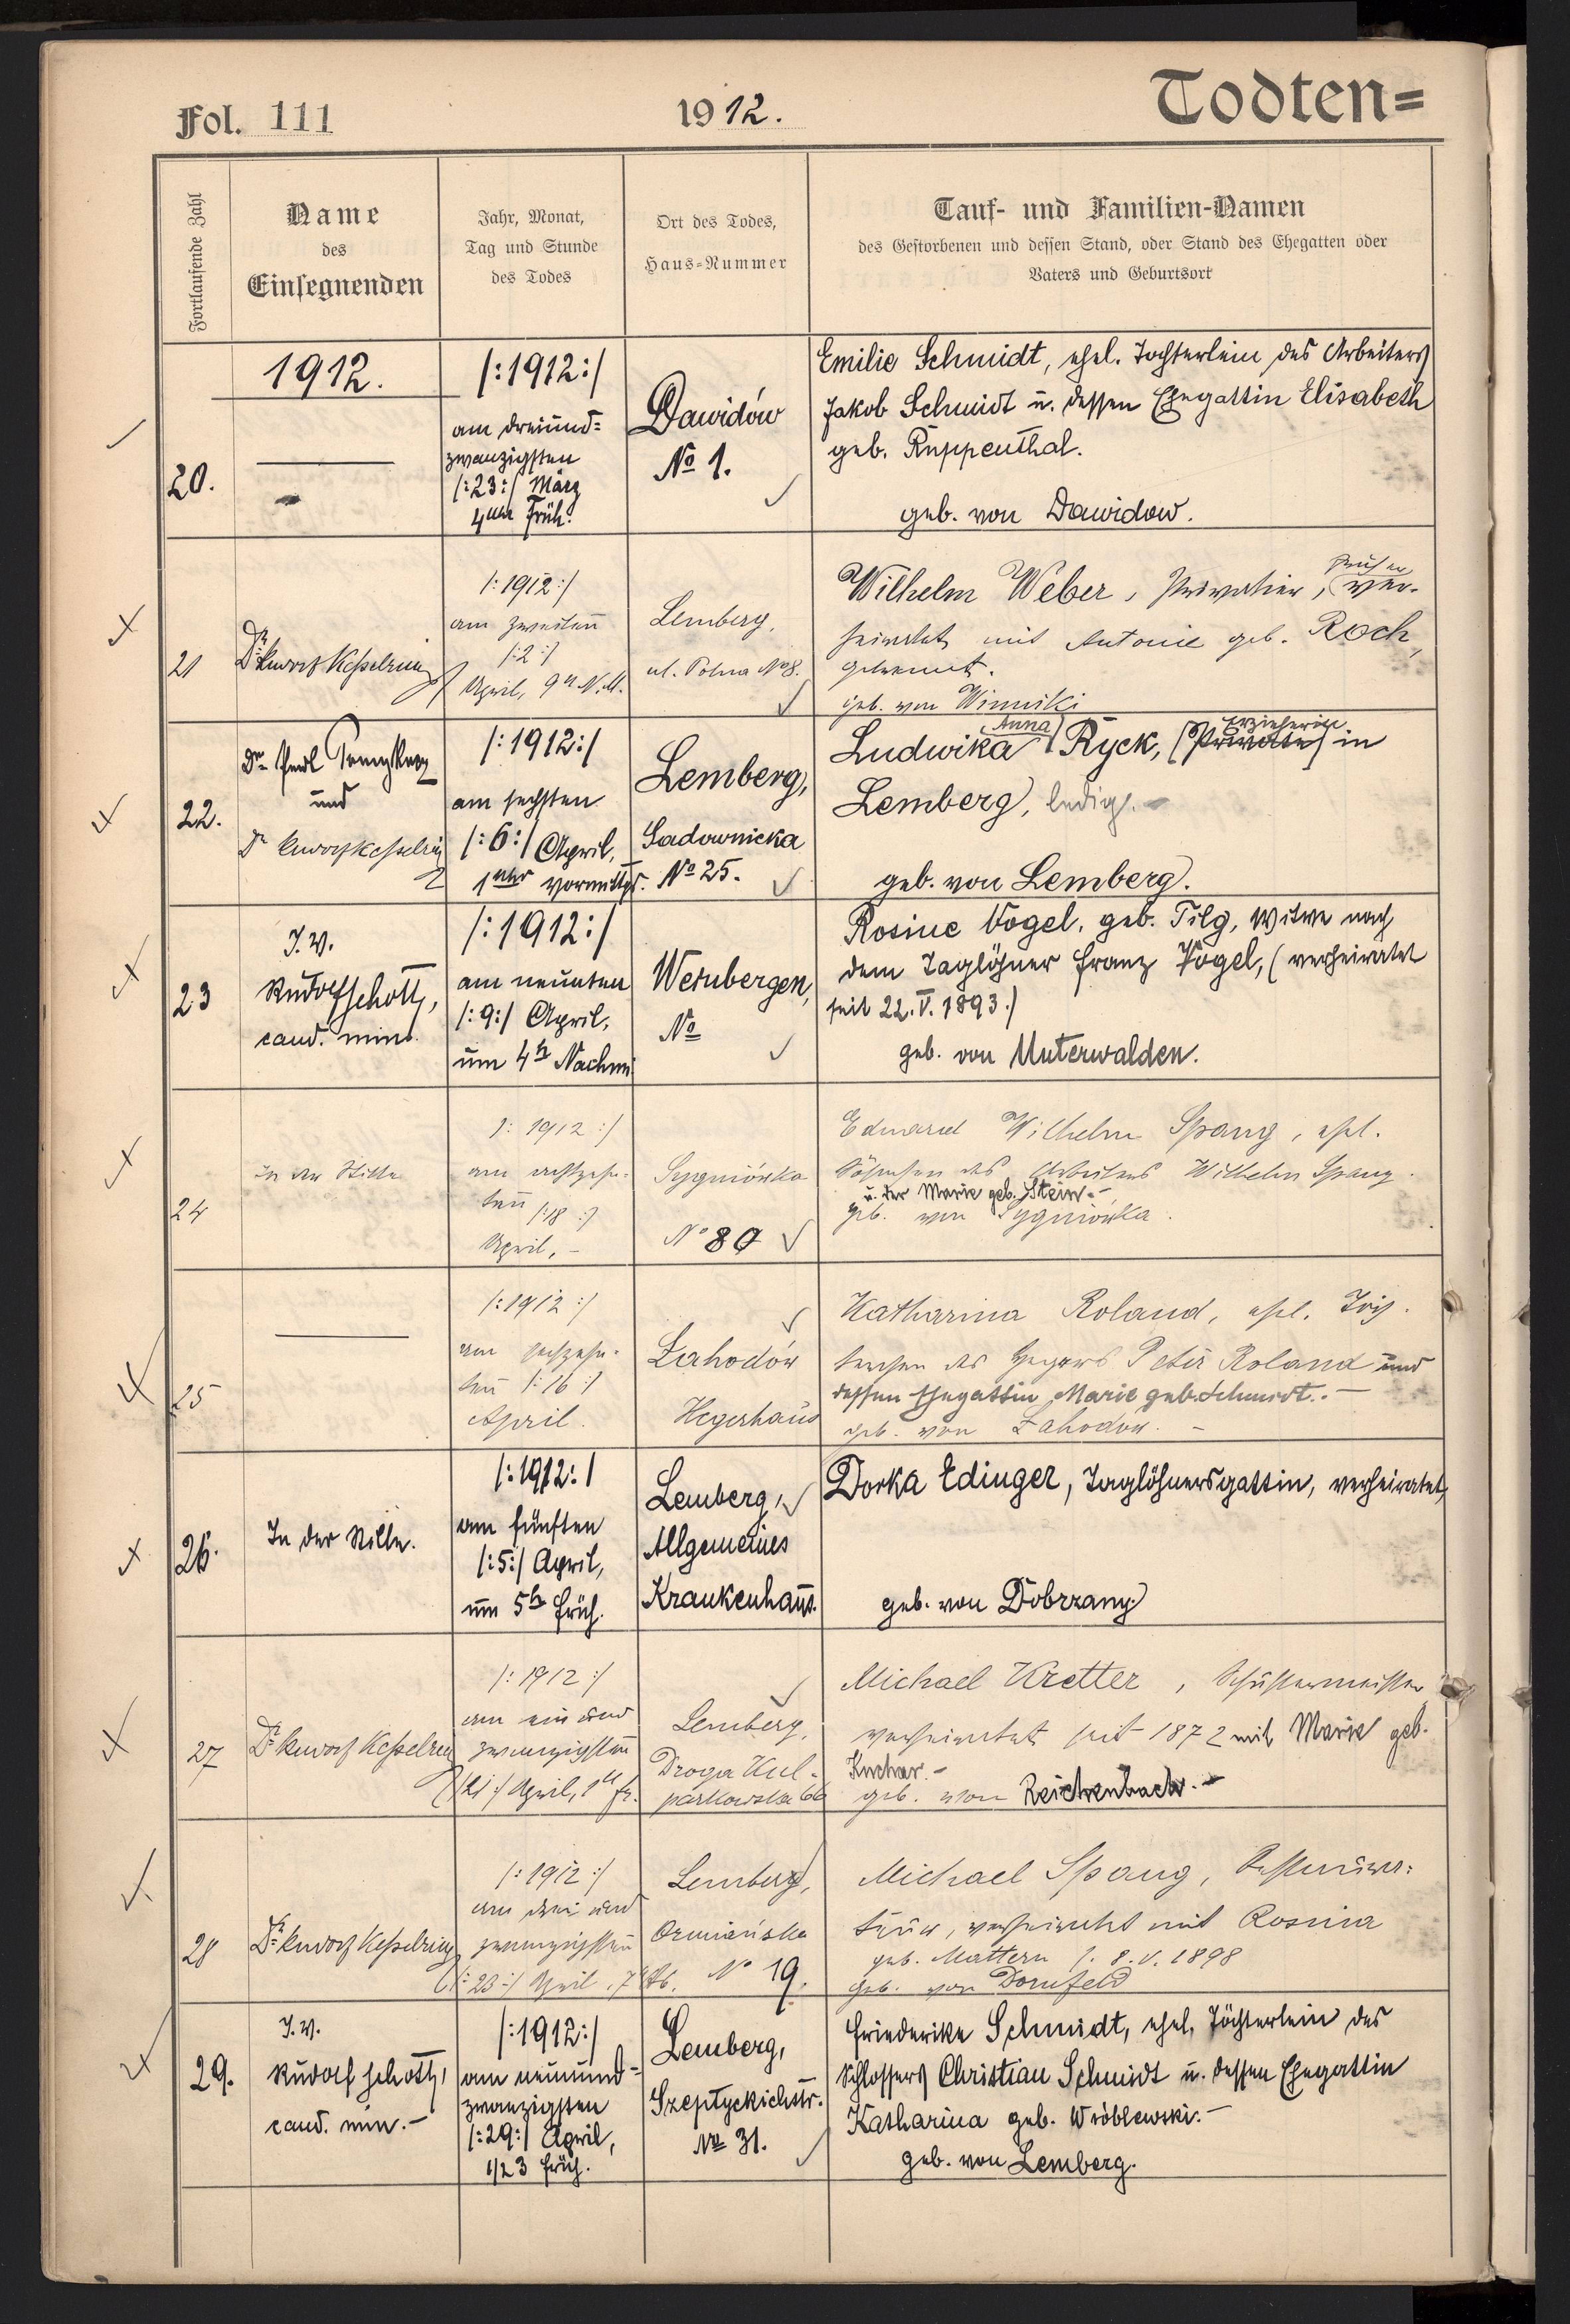 Fol. 111
1912.
Todten=
Fortlaufende Zahl
Name
des
Einsegnenden
Jahr, Monat,
Tag und Stunde
des Todes
Ort des Todes,
Haus-Nummer
Tauf- und Familien-Namen
des Gestorbenen und dessen Stand, oder Stand des Ehegatten oder
Vaters und Geburtsort
1912.
20.
/:1912:/
am dreiund=
zwanzigsten
/:23:/ März
4 Uhr Früh.
Dawidów
No 1.
Emilie Schmidt, ehel. Tochterlein des Arbeiters
Jakob Schmidt u. dessen Ehegattin Elisabeth
geb. Ruppenthal.
geb. von Dawidow.
21
Dr. Rudolf Kesselring
/:1912:/
am zweiten
/:2:/
April, 9 U. N.M.
Lemberg,
ul. Polna No 8.
früher
Wilhelm Weber, Privatier, ver-
heiratet mit Antonie geb. Roch,
getrennt.
geb. von Winniki
22.
Dr. Paul
und
Dr. Rudolf Kesselring
/:1912:/
am sechsten
/:6:/ April,
1 Uhr vormittgs.
Lemberg,
Sadownicka
No 25.
Anna Erzieherin
Ludwika Ryck, (Private) in
Lemberg, ledig.
geb. von Lemberg.
23
I. V.
Rudolf Schott,
cand. min.
/:1912:/
am neunten
/:9:/ April,
um 4 h Nachmi
Weinbergen,
No
Rosine Vogel, geb. Tilg, Witwe nach
dem Taglöhner Franz Vogel, (verheiratet
seit 22.V.1893.)
geb. von Unterwalden.
24
in der Stille
/:1912:/
am achtzehn-
ten /:18:/
April, -
Sygniówka
No 80
Eduard Wilhelm Spang, ehel.
Söhnchen des Arbeiters Wilhelm Spang
u. der Marie geb. Stein.-
geb. von Sygniówka.
25
/:1912:/
am sechzehn-
ten /:16:/
April.
Zahodów
Hegerhaus
Katharina Roland, ehel. Töch-
terchen des Hegers Peter Roland und
dessen Ehegattin Marie geb. Schmidt.-
geb. von Zahodów. -
26.
In der Stille.
/:1912:/
am fünften
/:5:/ April,
um 5 h früh.
Lemberg,
Allgemeines
Krankenhaus.
Dorka Edinger, Taglöhnersgattin, verheiratet,
geb. von Dobrzany
27
Dr. Rudolf Kesselring
/:1912:/
am ein und
zwanzigsten
/:21:/ April, 1 U fr.
Lemberg,
Droga Kul-
parkowska 66
Michael Kretter, Schustermeister
verheiratet seit 1872 mit Marie geb.
Kuchar.-
geb. von Reichenbach.-
28
Dr. Rudolf Kesselring
/:1912:/
am drei und
zwanzigsten
/:23:/ April, 7 U Ab.
Lemberg,
Ormiańska
No 19.
Michael Spang, Restaura-
teur, verheiratet mit Rosina
geb. Mattern /. 8.V.1898
geb. von Dornfeld
29.
I. V.
Rudolf Schott,
cand. min.-
/:1912:/
am neunund=
zwanzigsten
/:29:/ April,
1/2 3 früh.
Lemberg,
Szeptyckichstr.
No 31.
Friederike Schmidt, ehel. Töchterlein des
Schlossers Christian Schmidt u. dessen Ehegattin
Katharina geb. Wróblewski.-
geb. von Lemberg.